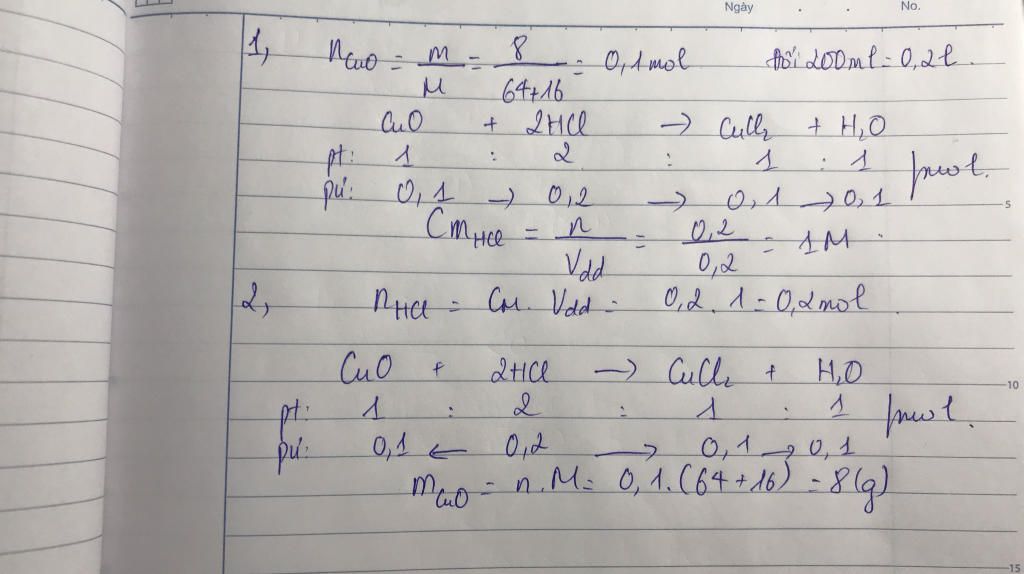 Ngày . . No.
1, nCuO = m/M = 8/64+16 = 0,1 mol Đổi 200ml = 0,2l.
CuO + 2HCl → CuCl₂ + H₂O
pt: 1 : 2 : 1 : 1
pứ: 0,1 → 0,2 → 0,1 → 0,1 mol.
5
CmHCl = n/Vdd = 0,2/0,2 = 1M.
2, nHCl = CM. Vdd = 0,2 . 1 = 0,2 mol
CuO + 2HCl → CuCl₂ + H₂O
10
pt: 1 : 2 : 1 : 1 mol.
pứ: 0,1 ← 0,2 → 0,1 → 0,1
mCuO = n.M = 0,1.(64+16) = 8(g)
15